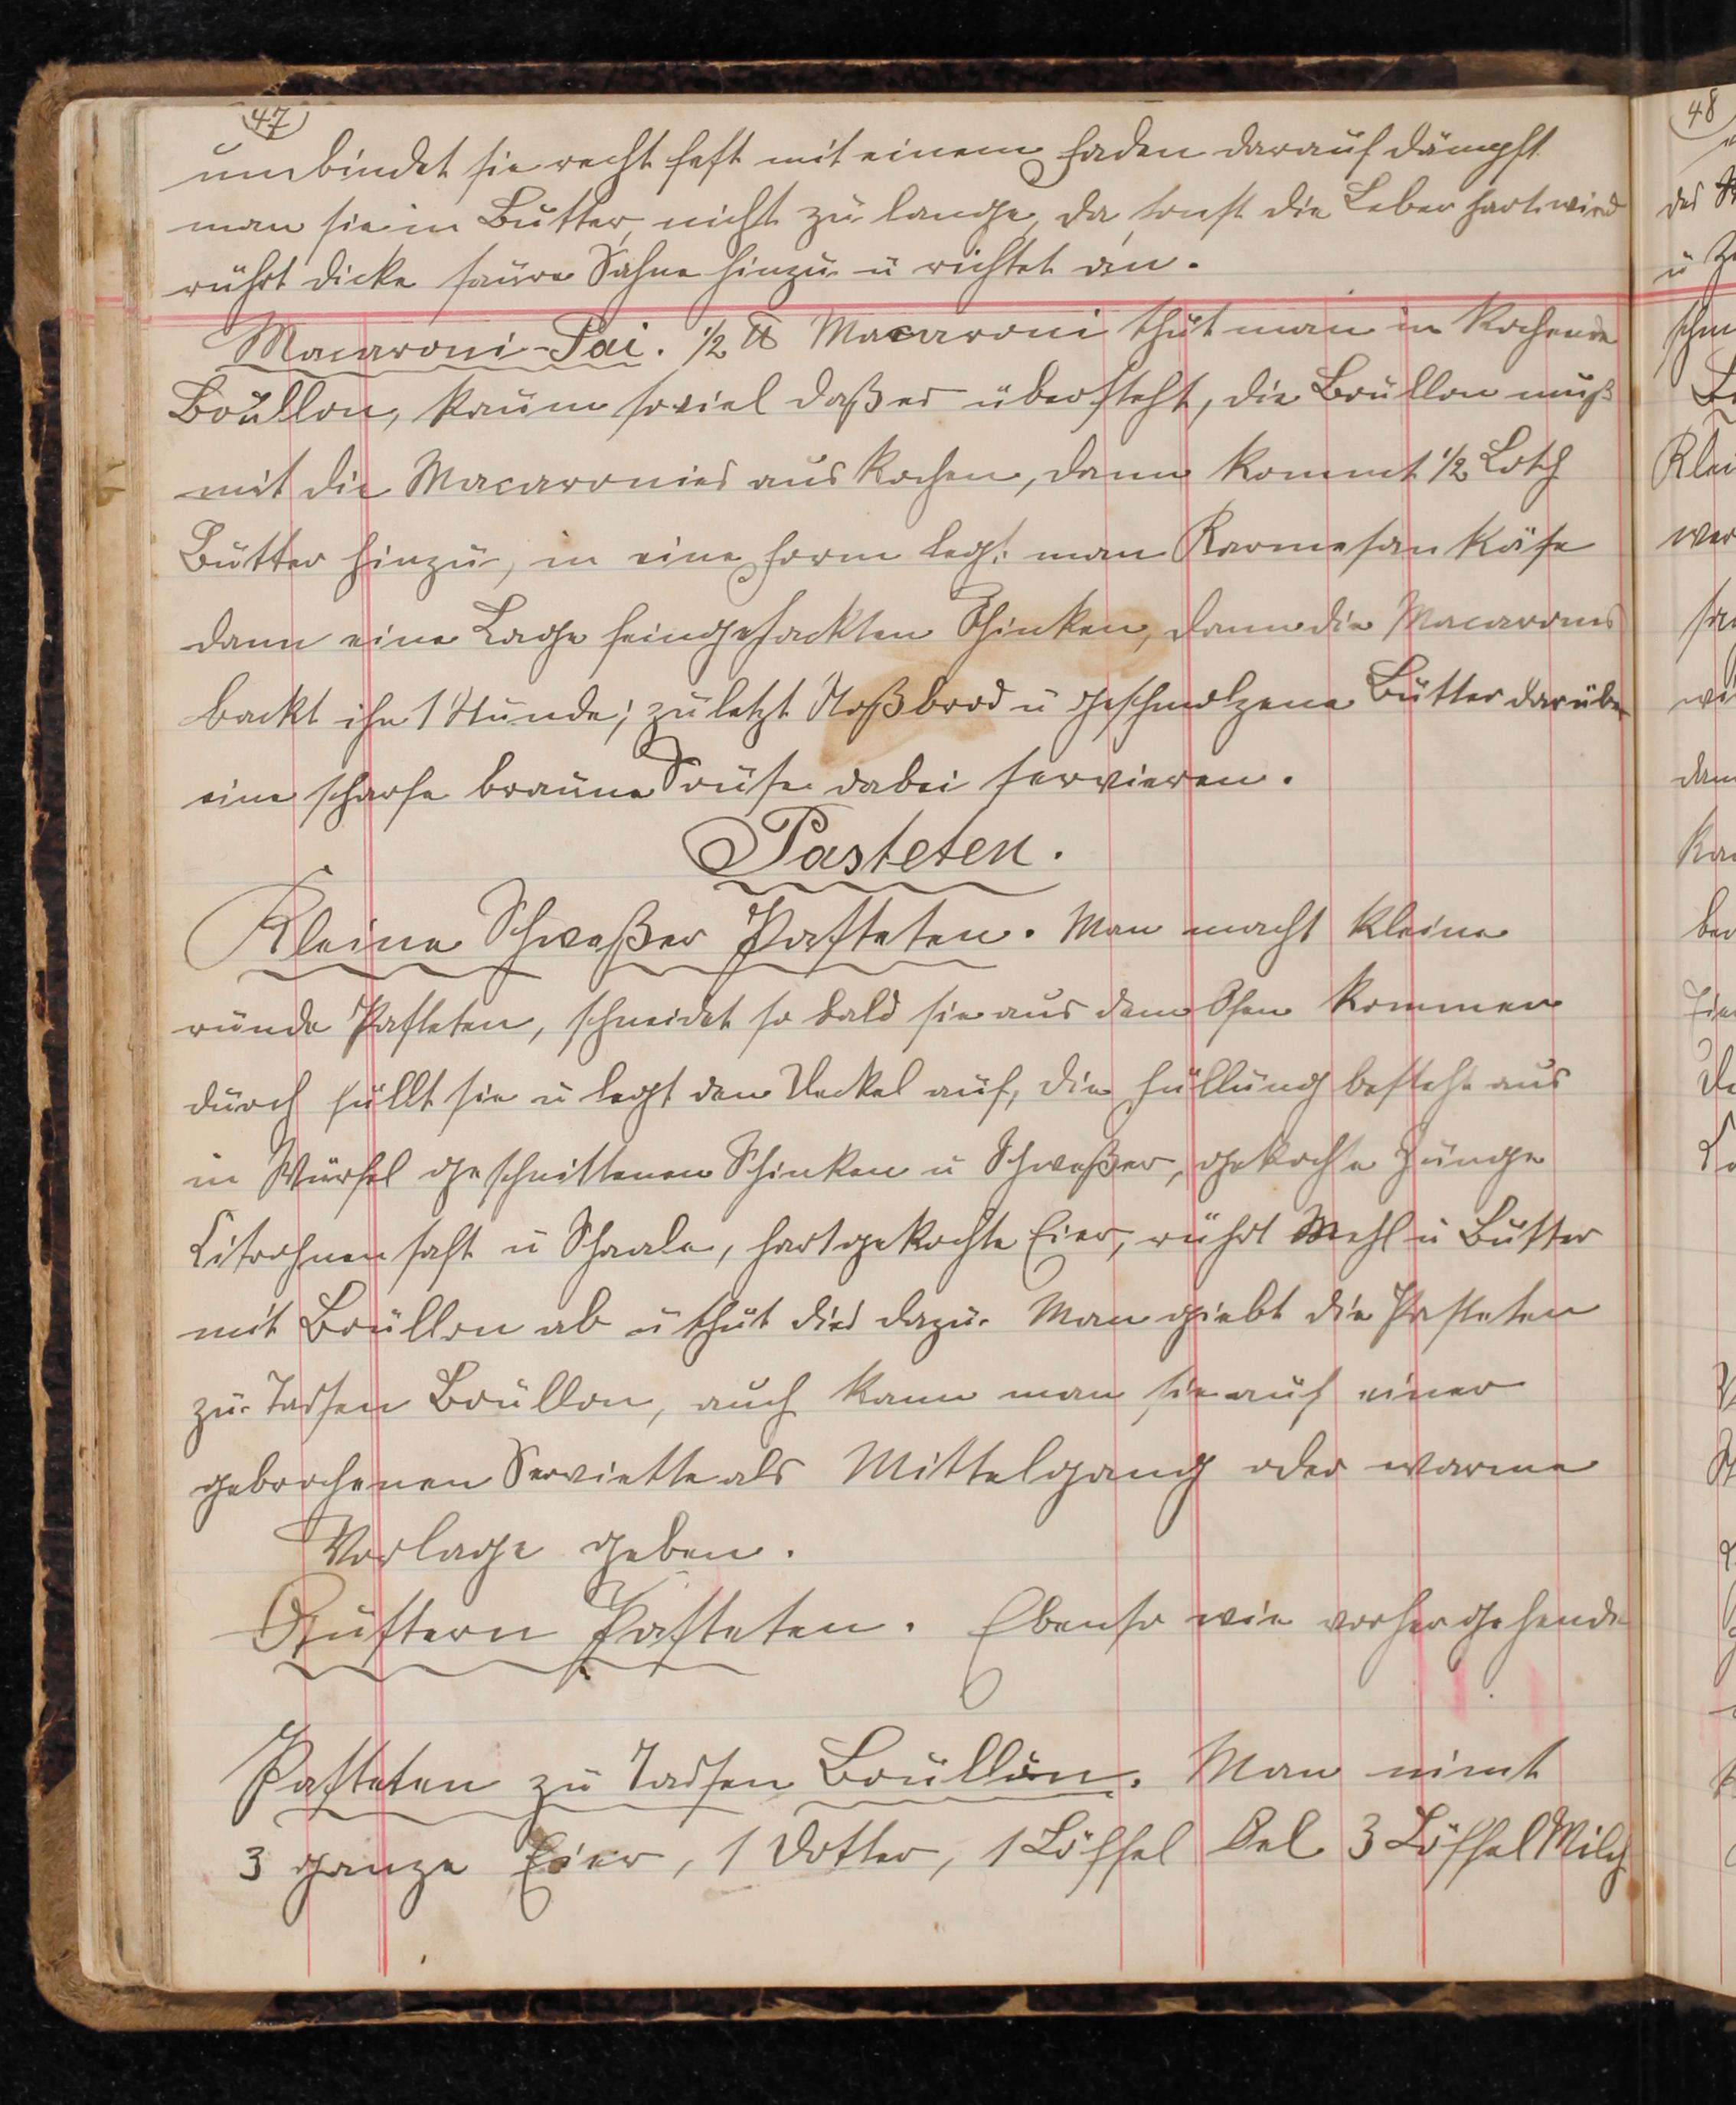 47
umbindet sie recht fest mit einem Faden darauf dämpft
man sie in Butter, nicht zu lange, da sonst die Leber hart wird
rührt dicke saure Sahne hinzu u richtet an.
Macaroni-Pai. 1/2 ℔ Macaroni thut man in kochende
Boullon, kaum soviel daß es übersteht, die Boullon muß
mit die Macaronies aus kochen, dann kommt 1/2 Loth
Butter hinzu, in eine Form legt man Parmesan Käse
dann eine Lage feingehackten Schinken, dann die Macaronis
backt ihn 1 Stunde; zuletzt Stoßbrod u geschmolzene Butter darüber
eine scharfe braune Souse dabei servieren.
Pasteten.
Kleine Schweßer Pasteten. Man macht kleine
runde Pasteten, schneidet so bald sie aus dem Ofen kommen
durch füllt sie u legt den Deckel auf, die Füllung besteht aus
in Würfel geschnittenen Schinken u Schweßer, gekochte Zunge
Citrohnen saft u Schaale, hartgekochte Eier, rührt Mehl u Butter
mit Boullon ab u thut dies dazu. Man giebt die Pasteten
zu Tassen Boullon, auch kann man sie auf einer
gebrochenen Serviette als Mittelgang oder warme
Vorlage geben.
Austern Pasteten. Ebenso wie vorhergehende
Pasteten zu Tassen Boullon. Man nimt
3 ganze Eier, 1 Dotter, 1 Löffel Oel 3 Löffel Milch
48